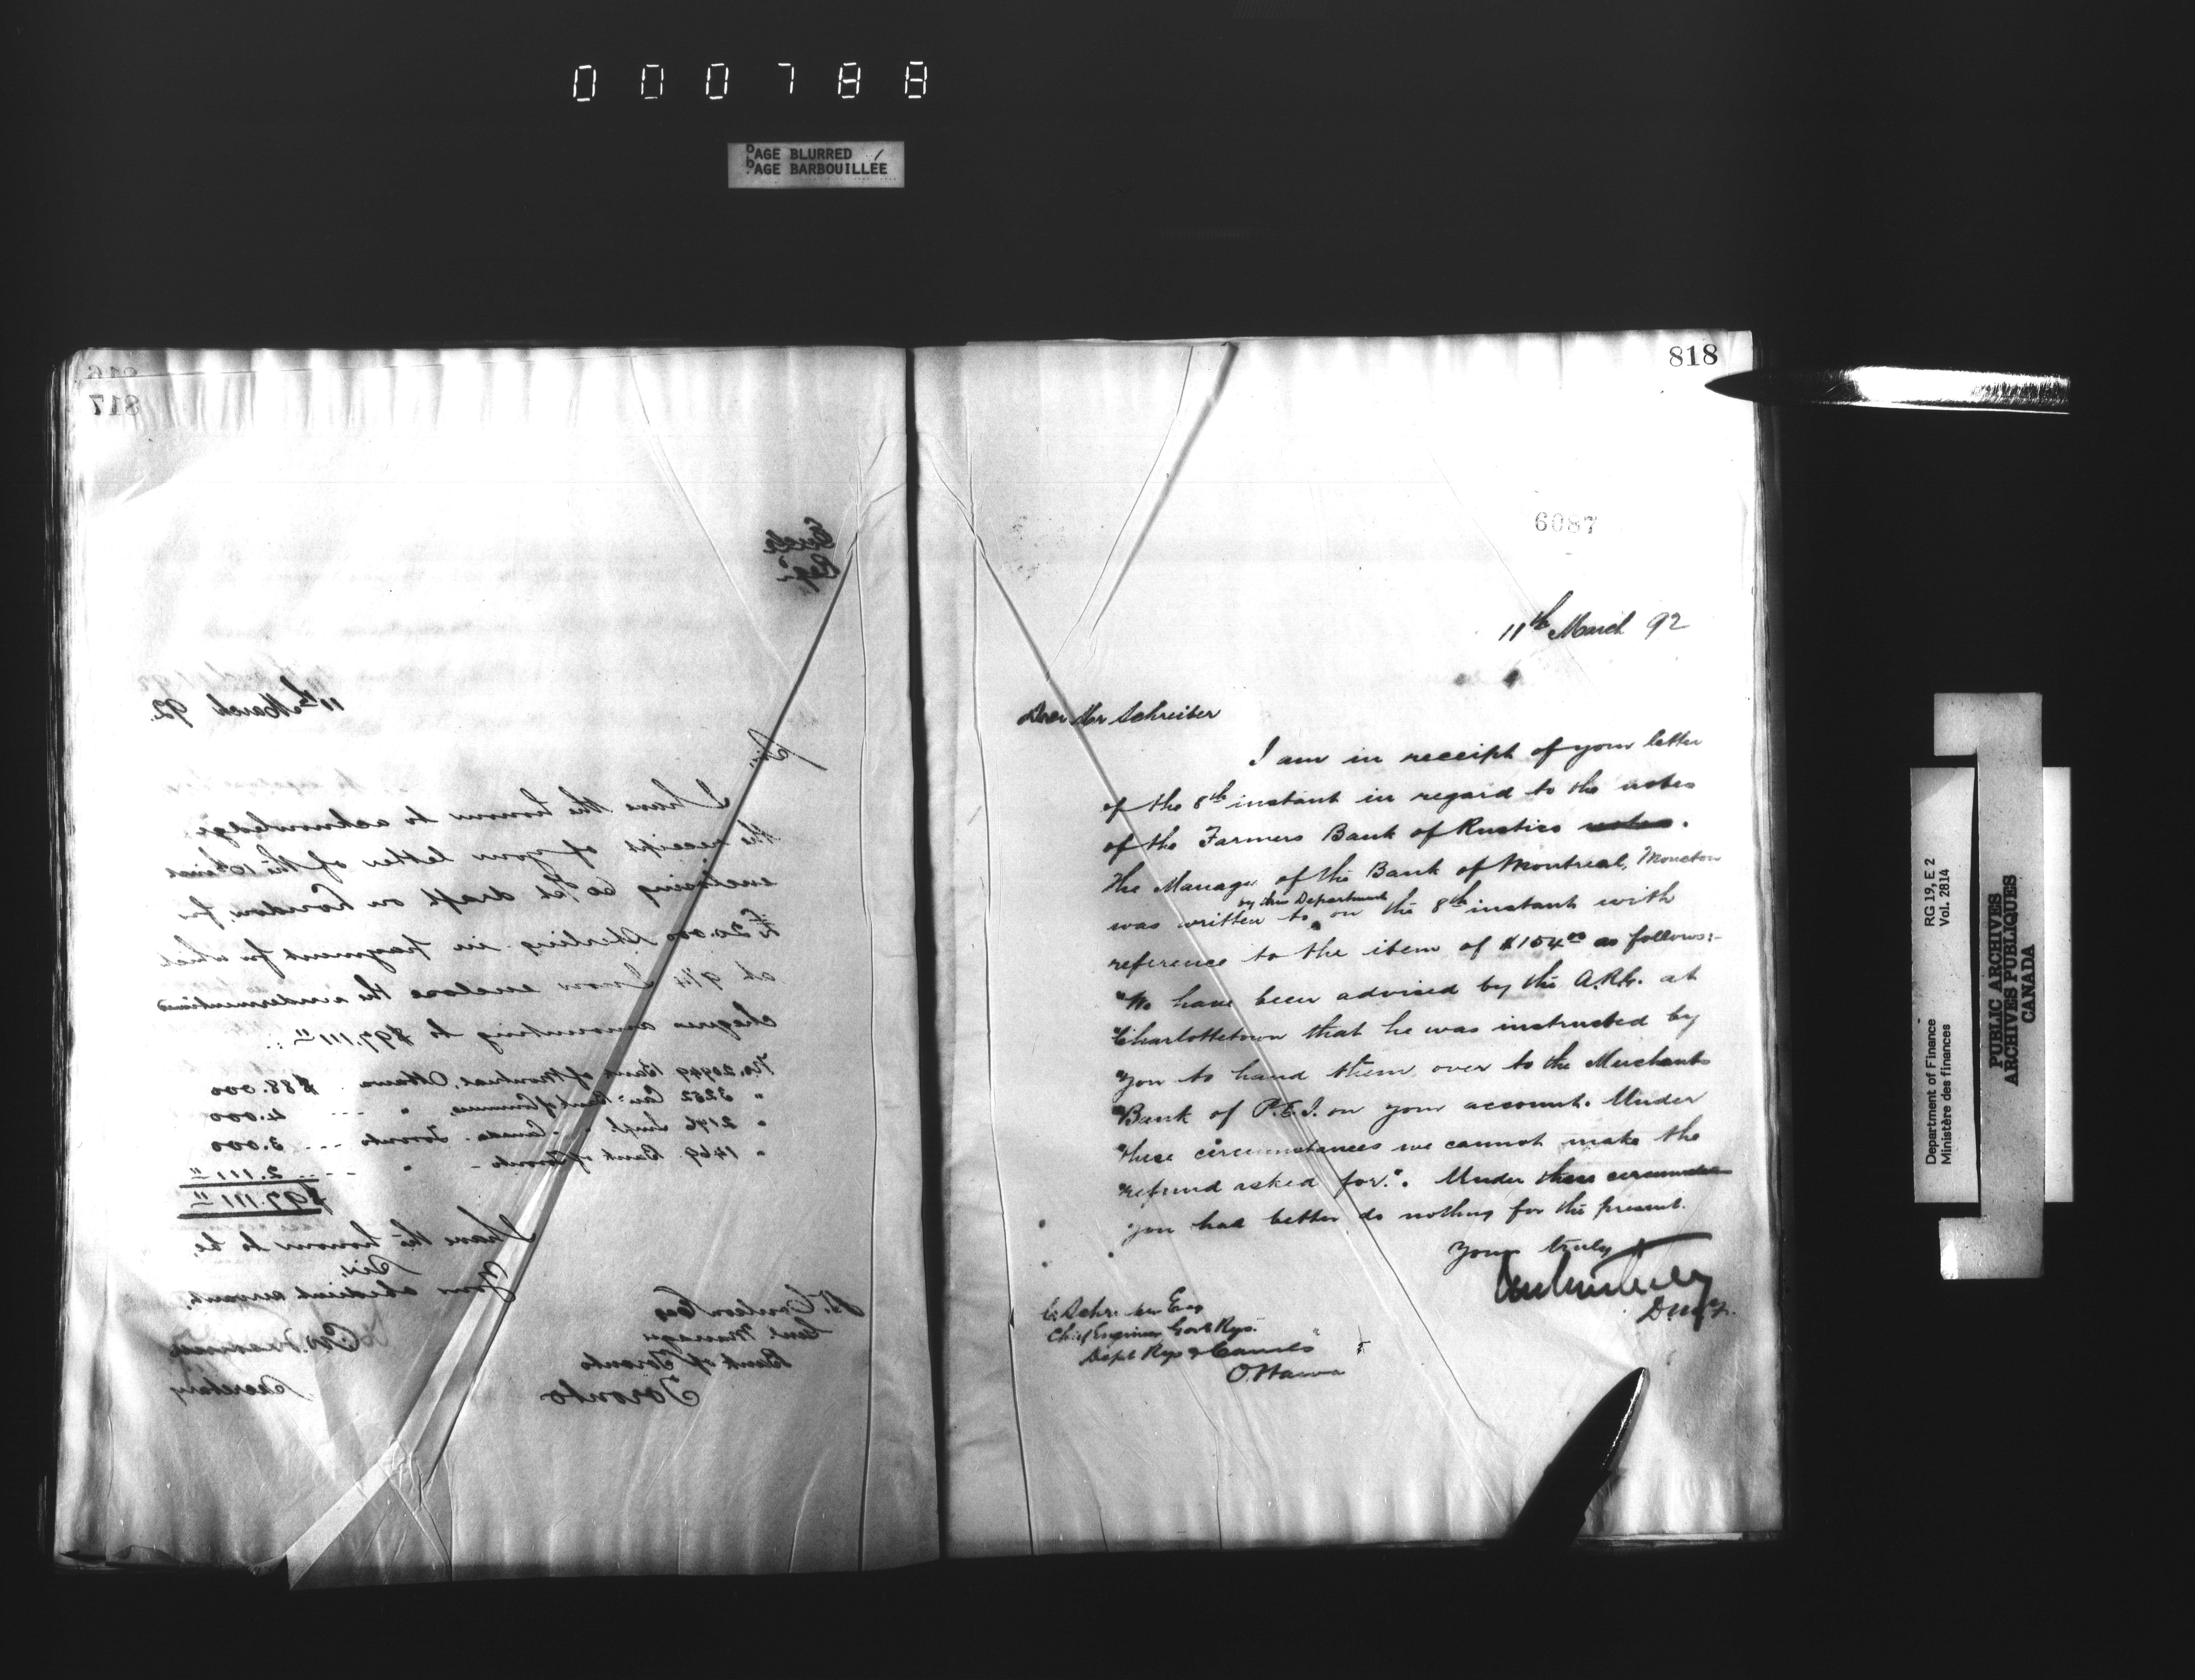 000788
PAGE BLURRED
PAGE BARBOUILLÉE
816
817
Encls
Reg'd
11th March 92.
Sir,
I have the honour to acknowledge
the receipt of your letter of the 10th inst
enclosing 60 d/s draft on London, for
£20.000 Sterling in payment for which
at 9 1/4 I now enclose the undermentioned
cheques amounting to $97,111 11
No. 20949 Bank of Montreal, Ottawa $88.000
" 3252 Can: Bank of Commerce, " 4.000
" 2196 Impl. " Canada. Toronto 3.000
" 1469 Bank of Toronto " 2.111 11
$97.111 11
I have the honour to be,
Sir,
Your obedient servant,
Secretary
D. Coulson Esq
Genl Manager
Bank of Toronto
Toronto
818
6087
11th March 92
Dear Mr Schreiber
I am in receipt of your letter
of the 8th instant in regard to the notes
of the Farmers Bank of Rustico notes.
The Manager of the Bank of Montreal, Moncton
by this Department
was written to on the 8th instant with
reference to the item of $154 00 as follows:-
"We have been advised by the A.R.G. at
"Charlottetown that he was instructed by
"you to hand them over to the Merchants
"Bank of P.E.I. on your account. Under
"these circumstances we cannot make the
"refund asked for." Under these circumstances
you had better do nothing for the present.
Yours truly
D.M.F.
C. Schreiber Esq
Chief Engineer Govt Rys.
Dept Rys & Canals
Ottawa
Department of Finance
Ministère des finances
RG 19, E 2
Vol. 2814
PUBLIC ARCHIVES
ARCHIVES PUBLIQUES
CANADA